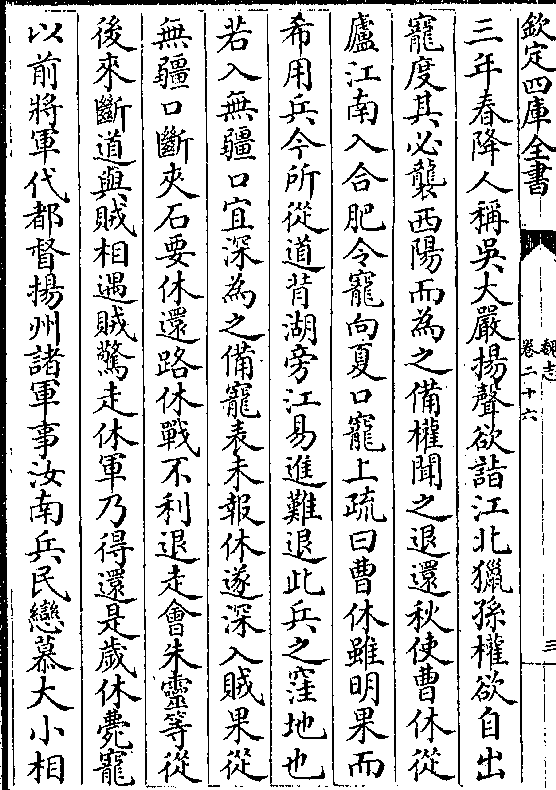 欽定四庫全書
魏志
卷二十六
三
三年春降人稱吳大嚴揚聲欲詣江北獵孫權欲自出
寵度其必襲西陽而為之備權聞之退還秋使曹休從
廬江南入合肥令寵向夏口寵上疏曰曹休雖明果而
希用兵今所從道背湖旁江易進難退此兵之窪地也
若入無疆口宜深為之備寵表未報休遂深入賊果從
無疆口斷夾石要休還路休戰不利退走會朱靈等從
後來斷道與賊相遇賊驚走休軍乃得還是歲休薨寵
以前將軍代都督揚州諸軍事汝南兵民戀慕大小相